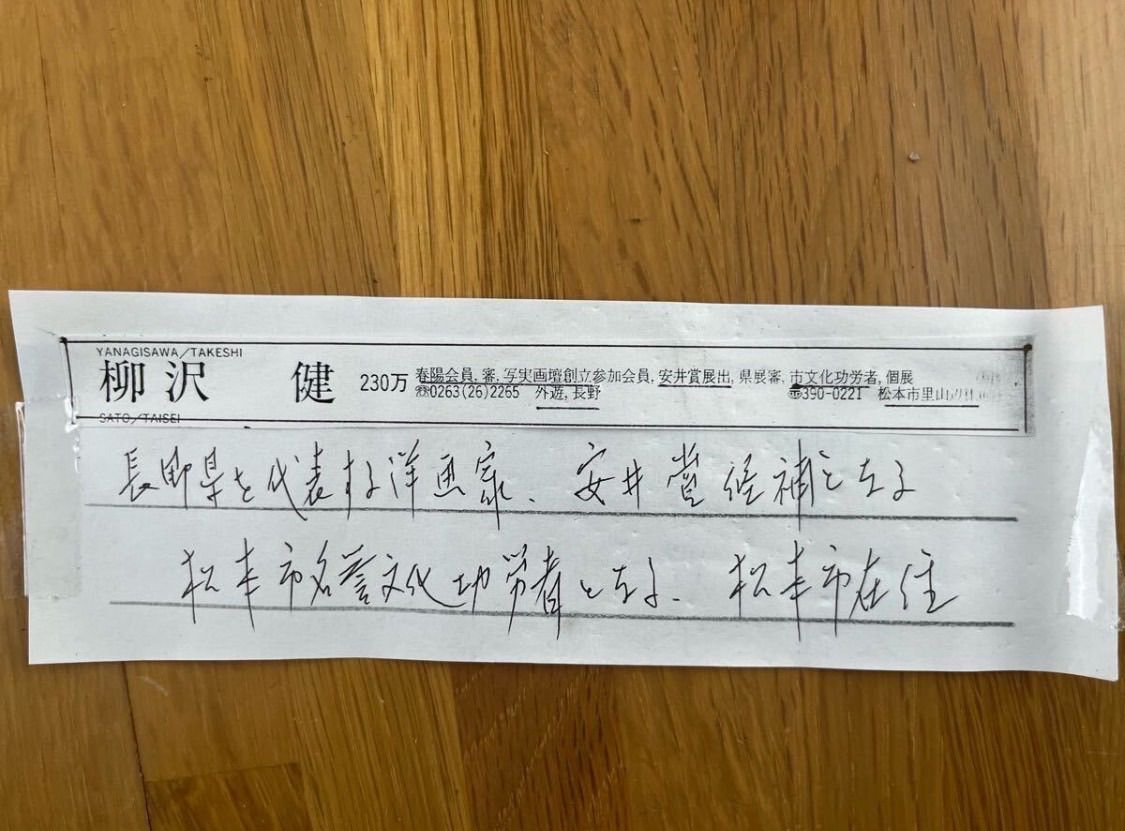 YANAGISAWA/TAKESHI
柳沢 健 230万 春陽会員, 審, 写実画壇創立参加会員, 安井賞展出, 県展審, 市文化功労者, 個展
☎0263(26)2265 外遊, 長野 〒390-0221 松本市里山
SATO/TAISEI
長野県を代表する洋画家、安井賞候補となる
松本市名誉文化功労者となる、松本市在住